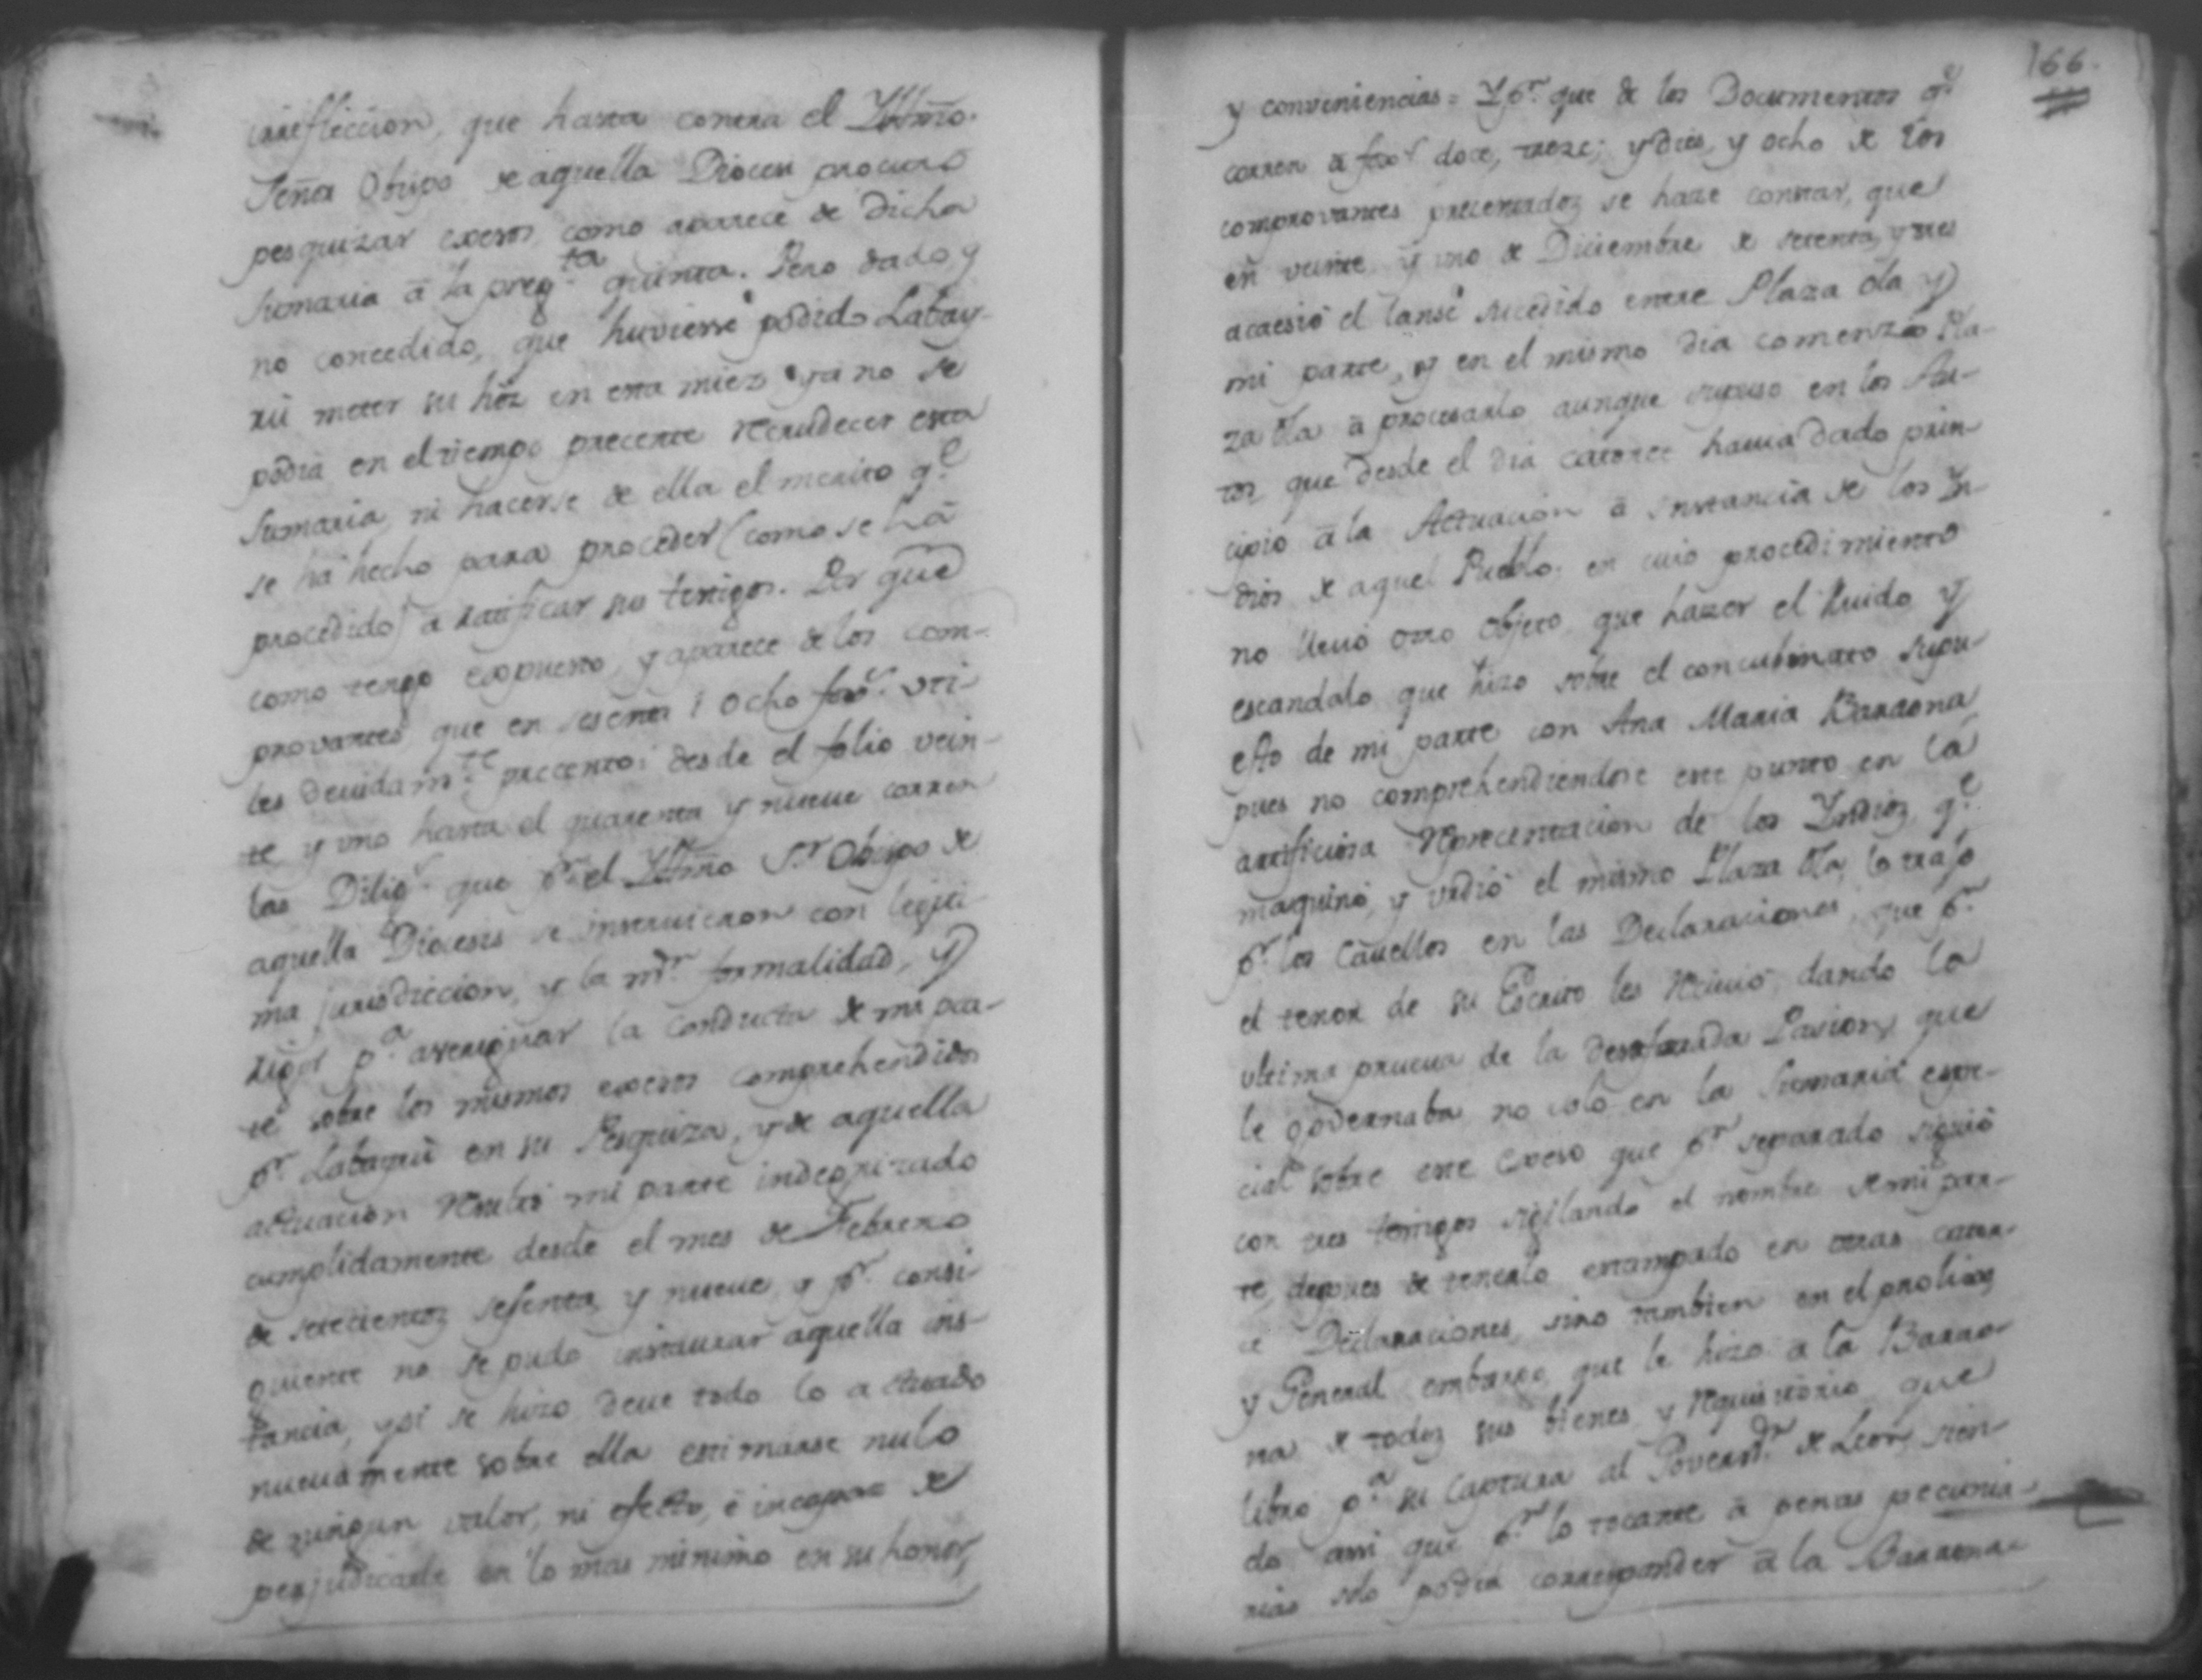 irrefleccion, que hasta contra el Yltmõ.
Señor Obispo de aquella Diocesi procuró
pesquizar excesos, como aparece de dicha
Sumaria â la preg.ta quinta. Pero dado, y
no concedido, que huviesse podido Labay-
rù meter su hoz en esta miez ya no se
podia en el tiempo precente recrudecer esta
Sumaria, ni hacerse de ella el merito q.e
se há hecho para proceder (como se há
procedido) â ratificar sus testigos. Por que
como tengo expuesto, y aparece de los com-
provantes que en sesenta i ocho fox.s uti-
les devidam.te precento: desde el folio vein-
te y uno hasta el quarenta y nueve corren
las Dilig.s que p.r el Yltmõ S.r Obispo de
aquella Diocesis se instruieron con legiti-
ma jurisdiccion, y la m.r formalidad, y
rigor p.a averiguar la conducta de mi par-
te sobre los mismos excesos comprehendidos
p.r Labayrù en su Pesquiza, y de aquella
actuacion resultó mi parte indegnizado
cumplidamente desde el mes de Febrero
de setecientoz sesenta y nueve, y p.r consi-
guiente no se pudo instaurar aquella ins-
tancia, y si se hizo deve todo lo actuado
nuevamente sobre ella estimarse nulo
de ningun valor, ni efecto, è incapaz de
perjudicarle en lo mas minimo en su honor,
166.
y conveniencias = Y p.r que de los Documentos q.e
corren â fox.s doce, treze; y dies, y ocho de los
comprovantes precentadoz se haze constar, que
en veinte y uno de Diciembre de setenta y tres
acaesió el lanse sucedido entre Plaza ola y
mi parte, y en el mismo dia comenzó Pla-
za Ola â procesarlo aunque supuso en los Au-
tos, que desde el dia catorce havia dado prin-
cipio â la Actuacion â instancia de los Yn-
dios de aquel Pueblo, en cuio procedimiento
no llevó otro objeto que hazer el ruido y
escandalo que hizo sobre el concubinato supu-
esto de mi parte con Ana Maria Barrona,
pues no comprehendiendose este punto en la
artificiosa representacion de los Yndioz q.e
maquinó, y urdió el mismo Plaza Ola, lo trajo
p.r los cavellos en las Declaraciones, que p.r
el tenor de su Escrito les recivió, dando la
ultima prueva de la desaforada Pasion, que
le governaba no solo en la Sumaria espe-
cial sobre este exceso que p.r separado siguió
con tres testigos sigilando el nombre de mi par-
te, depues de tenerlo estampado en otras cator-
ce Declaraciones, sino tambien en el prolixo
y General embargo, que le hizo â la Barro-
na de todoz sus bienes, y requisitorio, que
libró p.a su captura al Govern.dr de Leon, sien-
do assi que p.r lo tocante â penas pecunia-
rias solo podia corresponder â la Barrona